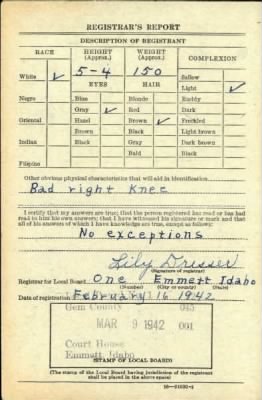 REGISTRAR'S REPORT
DESCRIPTION OF REGISTRANT
RACE HEIGHT (Approx.) WEIGHT (Approx.) COMPLEXION
White ✓ 5-4 150 Sallow
EYES HAIR Light ✓
Negro Blue Blonde Ruddy
Gray ✓ Red Dark
Oriental Hazel Brown ✓ Freckled
Brown Black Light brown
Indian Black Gray Dark brown
Bald Black
Filipino
Other obvious physical characteristics that will aid in identification
Bad right Knee
I certify that my answers are true; that the person registered has read or has had
read to him his own answers; that I have witnessed his signature or mark and that
all of his answers of which I have knowledge are true, except as follows:
No exceptions
Lily Dresser
(Signature of registrar)
Registrar for Local Board One Emmett Idaho
(Number) (City or county) (State)
Date of registration February 16 1942
Gem County 045
MAR 9 1942 001
Court House
Emmett Idaho
(STAMP OF LOCAL BOARD)
(The stamp of the Local Board having jurisdiction of the registrant
shall be placed in the above space)